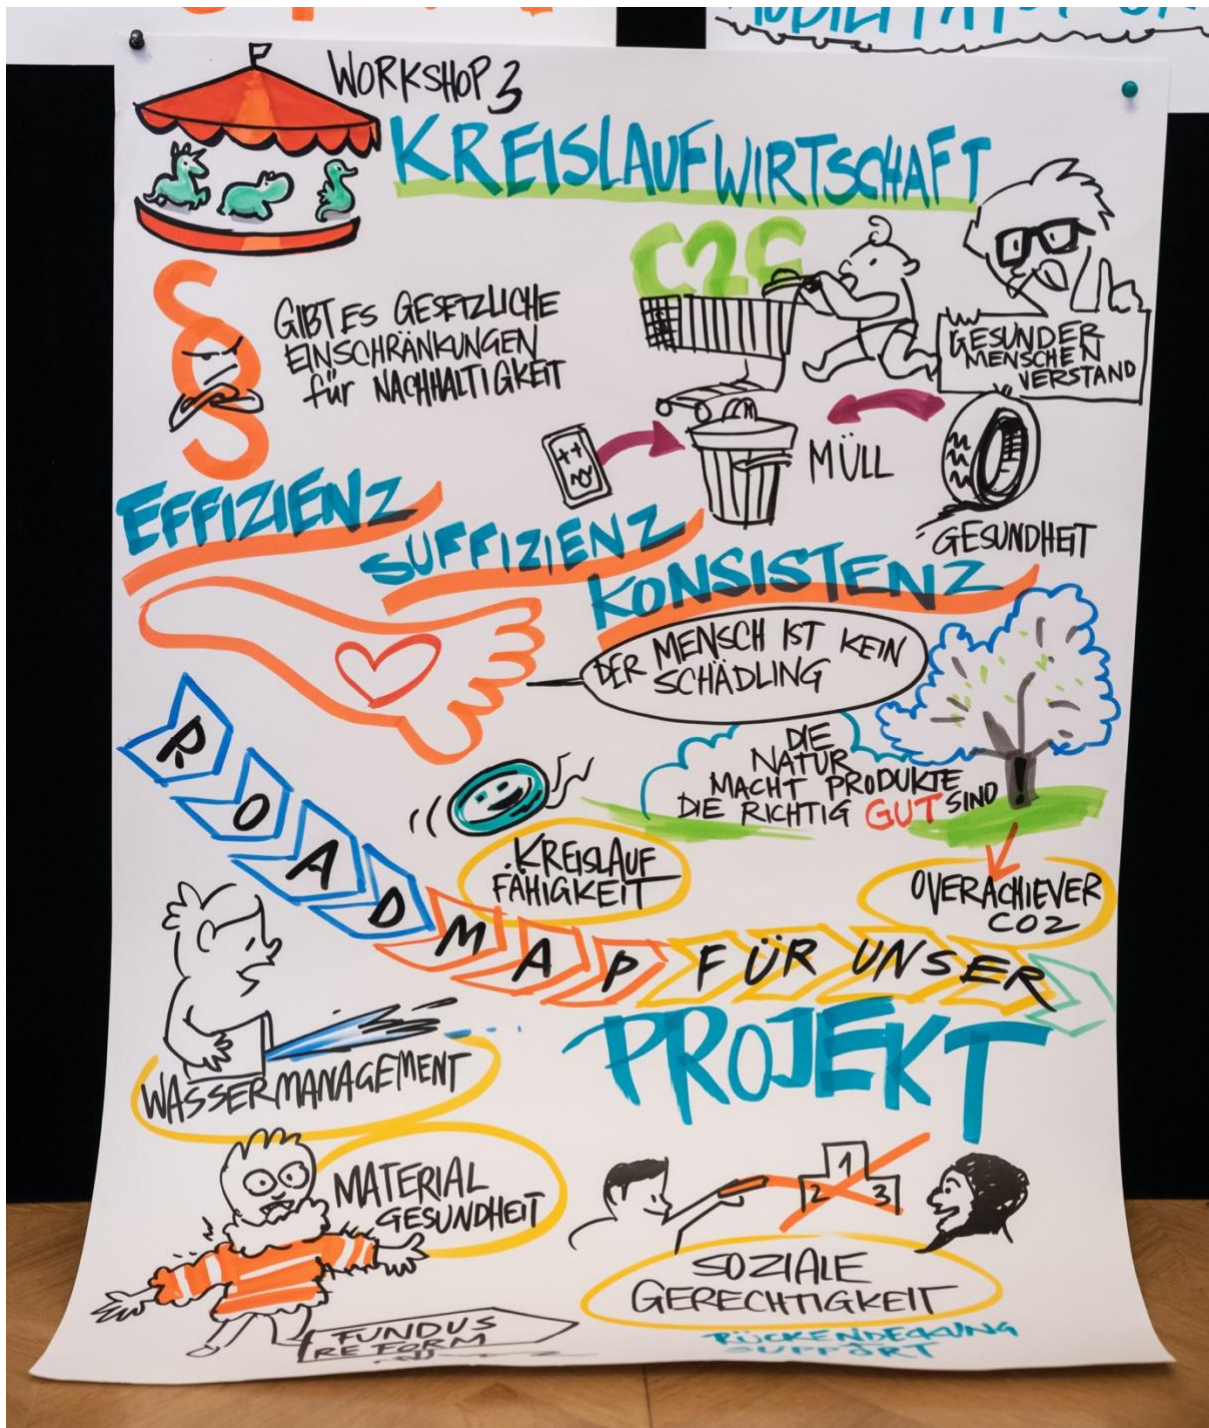 WORKSHOP 3
KREISLAUFWIRTSCHAFT
C2C
GIBT ES GESETZLICHE
EINSCHRÄNKUNGEN
für NACHHALTIGKEIT
GESUNDER
MENSCHEN
VERSTAND
MÜLL
GESUNDHEIT
EFFIZIENZ
SUFFIZIENZ
KONSISTENZ
DER MENSCH IST KEIN
SCHÄDLING
DIE
NATUR
MACHT PRODUKTE
DIE RICHTIG GUT SIND
!
KREISLAUF
FÄHIGKEIT
OVERACHIEVER
CO2
ROADMAP FÜR UNSER
PROJEKT
WASSERMANAGEMENT
MATERIAL
GESUNDHEIT
1
2 3
SOZIALE
GERECHTIGKEIT
RÜCKENDECKUNG
SUPPORT
FUNDUS
REFORM